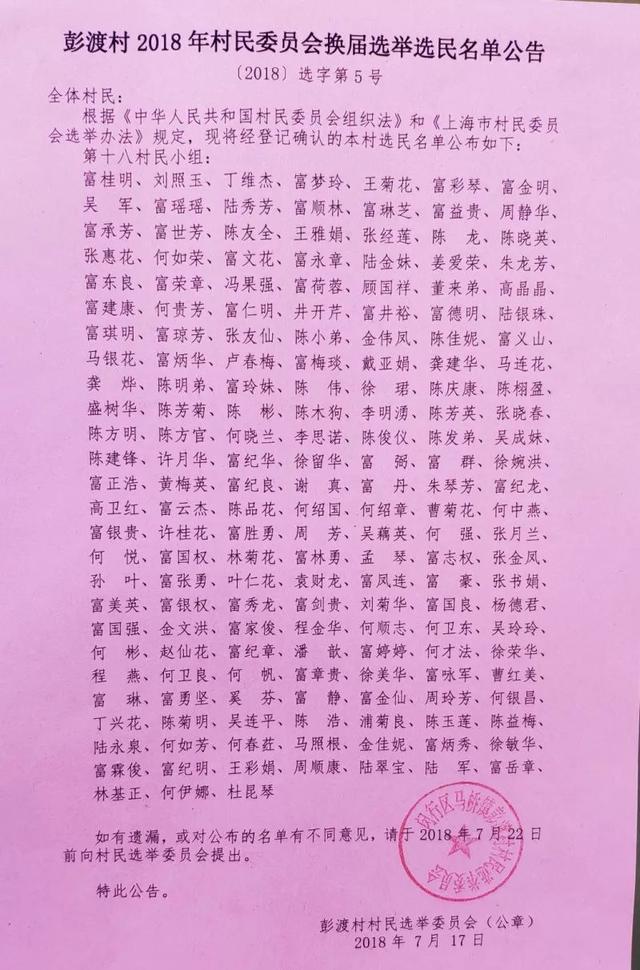 彭渡村2018年村民委员会换届选举选民名单公告
〔2018〕选字第5号
全体村民：
根据《中华人民共和国村民委员会组织法》和《上海市村民委员
会选举办法》规定，现将经登记确认的本村选民名单公布如下：
第十八村民小组：
富桂明、刘照玉、丁维杰、富梦玲、王菊花、富彩琴、富金明、
吴　军、富瑶瑶、陆秀芳、富顺林、富琳芝、富益贵、周静华、
富承芳、富世芳、陈友全、王雅娟、张经莲、陈　龙、陈晓英、
张惠花、何如荣、富文花、富永章、陆金妹、姜爱荣、朱龙芳、
富东良、富荣章、冯果强、富荷蓉、顾国祥、董来弟、高晶晶、
富建康、何贵芳、富仁明、井开芹、富井裕、富德明、陆银珠、
富琪明、富琼芳、张友仙、陈小弟、金伟凤、陈佳妮、富义山、
马银花、富炳华、卢春梅、富梅琰、戴亚娟、龚建华、马连花、
龚　烨、陈明弟、富玲妹、陈　伟、徐　珺、陈庆康、陈栩盈、
盛树华、陈芳菊、陈　彬、陈木狗、李明湧、陈芳英、张晓春、
陈方明、陈方官、何晓兰、李思诺、陈俊仪、陈发弟、吴成妹、
陈建锋、许月华、富纪华、徐留华、富　弼、富　群、徐婉洪、
富正浩、黄梅英、富纪良、谢　真、富　丹、朱琴芳、富纪龙、
高卫红、富云杰、陈品花、何绍国、何绍章、曹菊花、何中燕、
富银贵、许桂花、富胜勇、周　芳、吴藕英、何　强、张月兰、
何　悦、富国权、林菊花、富林勇、孟　琴、富志权、张金凤、
孙　叶、富张勇、叶仁花、袁财龙、富凤连、富　豪、张书娟、
富美英、富银权、富秀龙、富剑贵、刘菊华、富国良、杨德君、
富国强、金文洪、富家俊、程金华、何顺志、何卫东、吴玲玲、
何　彬、赵仙花、富纪章、潘　歆、富婷婷、何才法、徐荣华、
程　燕、何卫良、何　帆、富章贵、徐美华、富咏军、曹红美、
富　琳、富勇坚、奚　芬、富　静、富金仙、周玲芳、何银昌、
丁兴花、陈菊明、吴连平、陈　浩、浦菊良、陈玉莲、陈益梅、
陆永泉、何如芳、何春荭、马照根、金佳妮、富炳秀、徐敏华、
富霖俊、富纪明、王彩娟、周顺康、陆翠宝、陆　军、富岳章、
林基正、何伊娜、杜昆琴
如有遗漏，或对公布的名单有不同意见，请于2018年7月22日
前向村民选举委员会提出。
特此公告。
闵行区马桥镇彭渡村村民选举委员会
彭渡村村民选举委员会（公章）
2018年7月17日